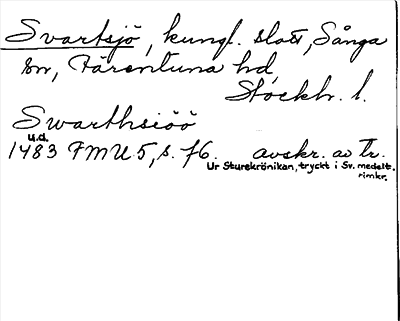 Svartsjö, kungl. slott, Sånga
sn, Färentuna hd,
Stockh. l.
Swarthsiöö
u.d.
1483 FMU 5, s. 76. avskr. av tr.
Ur Sturekrönikan, tryckt i Sv. medelt.
rimkr.